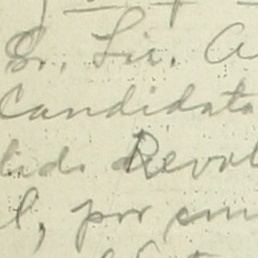 Sr. Lic. A
Candidato
tido Revol
l, por con